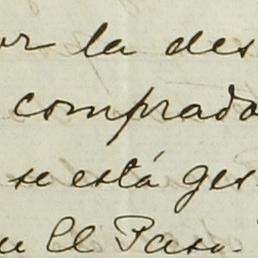 or la des
comprado
se está ges
El Paso.